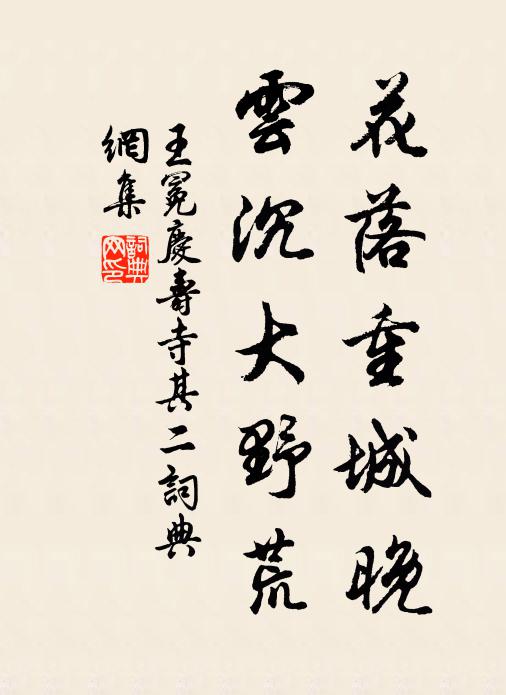 花落重城晚
雲沉大野荒
王冕慶壽寺其二詞典
網集
詞典網印